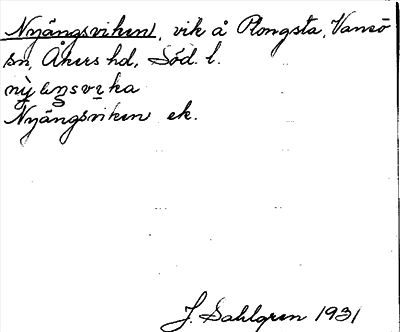 Nyängsviken, vik å Plongsta, Vansö
sn, Åkers hd, Söd. l.
Nyängsviken ek.
J. Sahlgren 1931